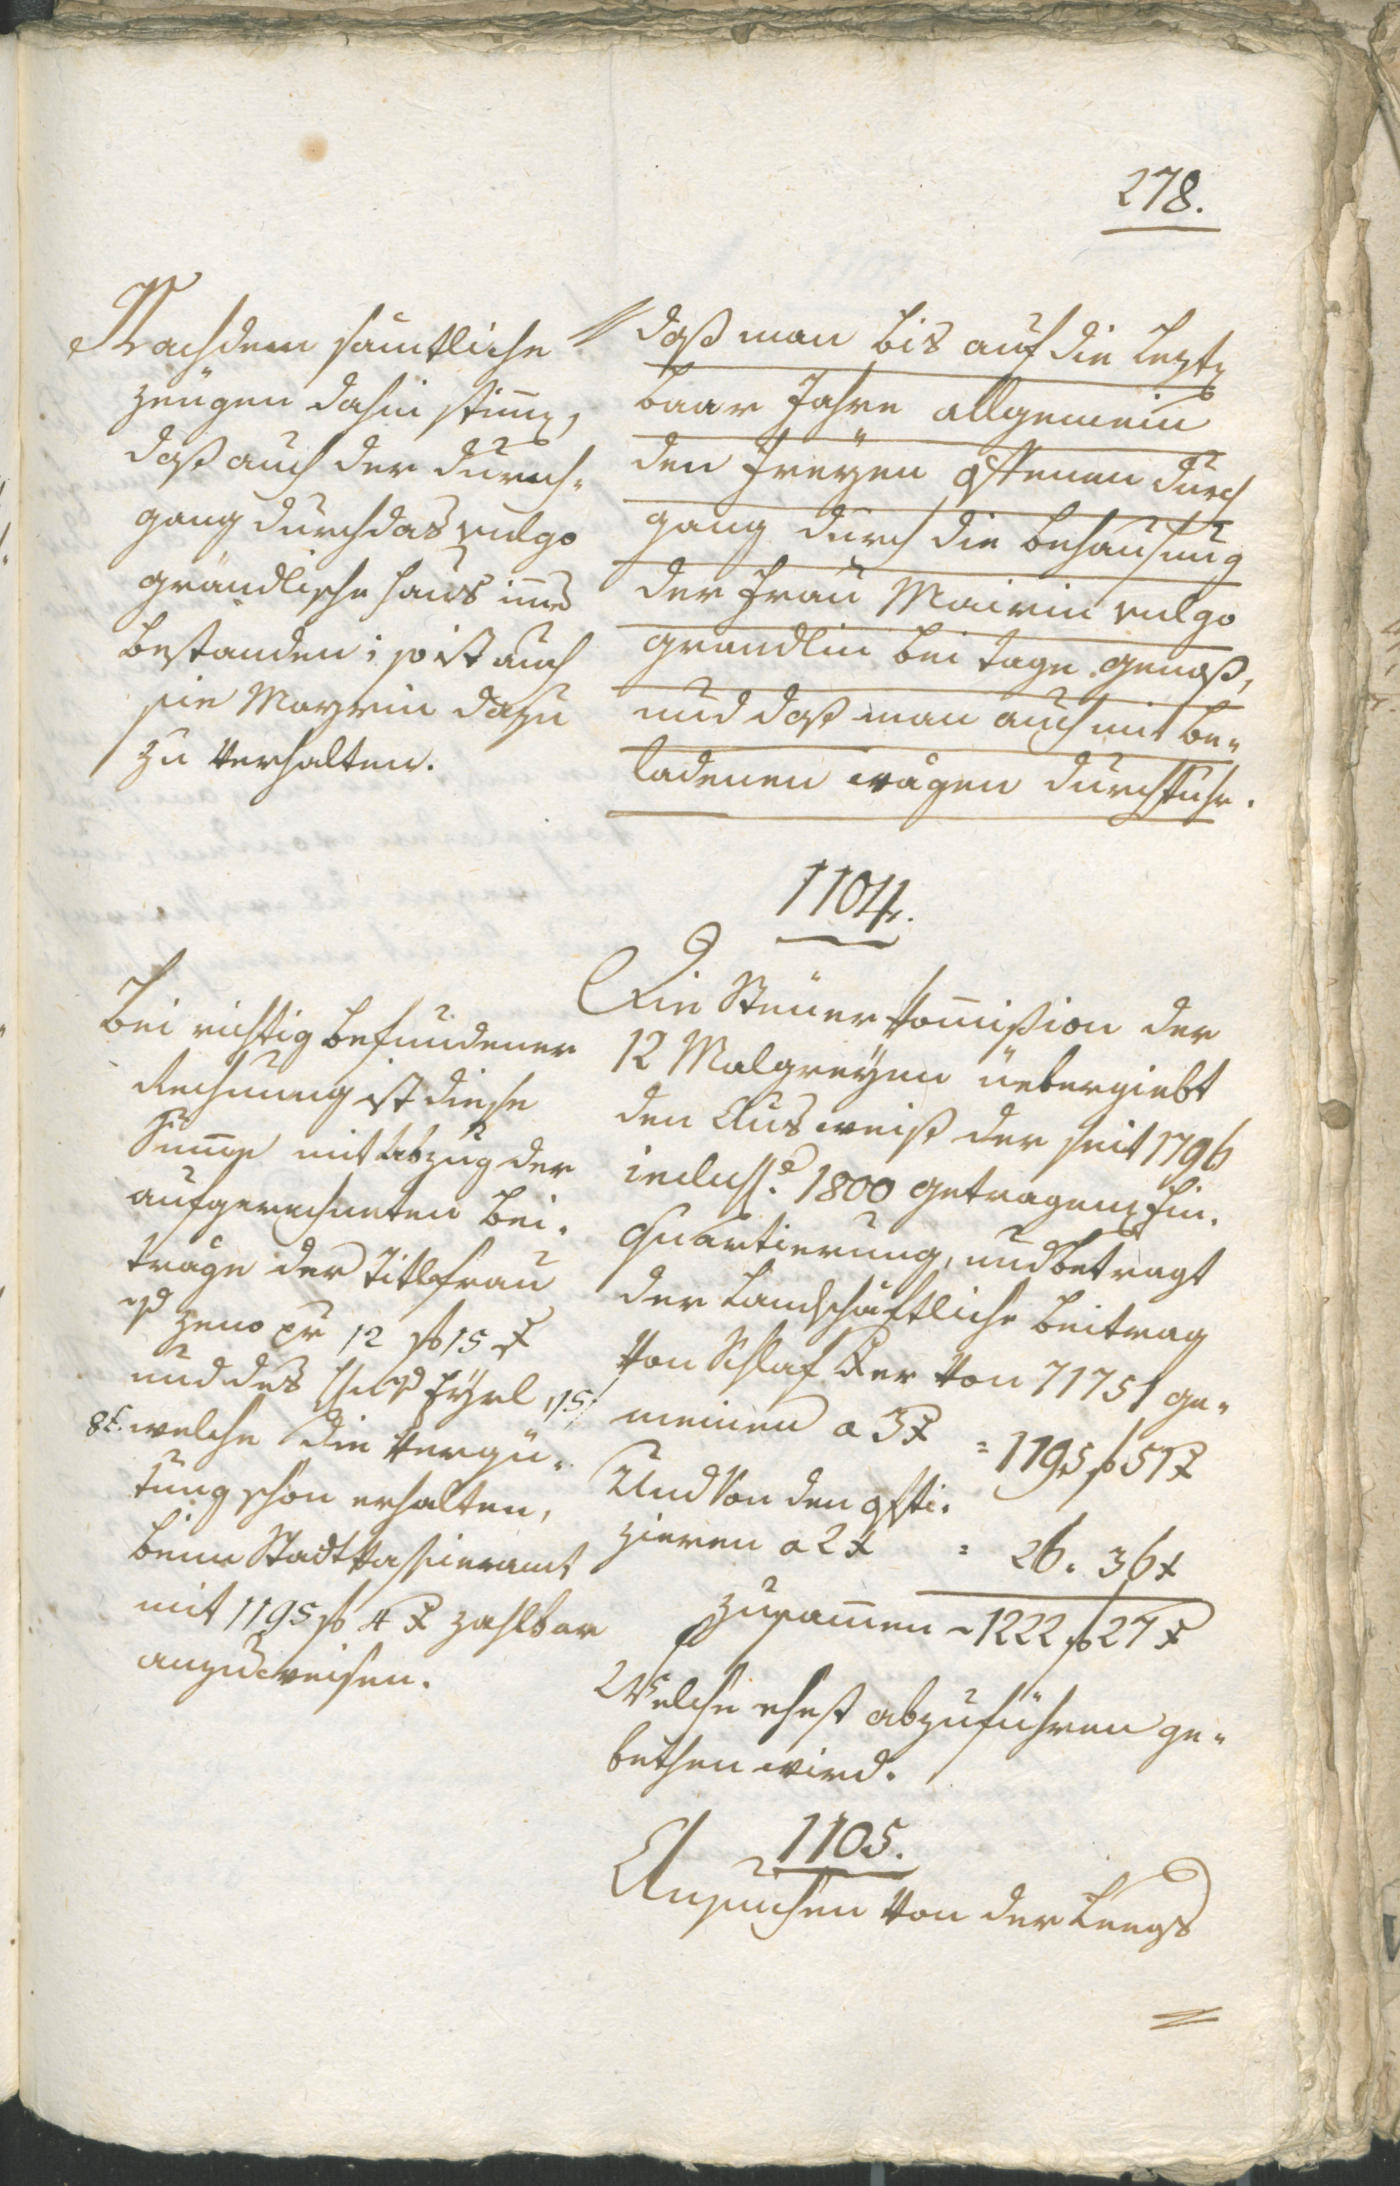 278.
Nachdem sämtliche
zeugen dahin stim̄en,
daß auch der durch-
gang durch das vulgo
grandlische Haus im̄er
bestanden; so ist auch
sie Mayrin dazu
zu verhalten.
daß man bis auf die lezten
baar Jahre allgemein
den freyen offenen durch
gang durch die behausung
der Frau Mairin vulgo
grandlin bei tage genoß,
und daß man auch mit be-
ladenen wägen durchfuhr.
1104.
Bei richtig befundener
Rechnung ist diese
Sum̄e mit Abzug der
aufgerechneten Bei-
träge der Titl Frau
zeno pr 12 f 15 x
und des Fyrl 15 f
8 x. welche die vergü-
tung schon erhalten,
beim Stadtkassieramt
mit 1195 f 4 x zahlbar
anzuweisen.
Die Steuer Kom̄ißion der
12 Malgreyen üebergiebt
den Ausweiß der seit 1796
inclus. 1800 getragenen Ein-
quartierung, und betragt
der Landschäftliche beitrag
von Schlaf Xer von 71751 ge-
meinen a 3 x = 1195 f 51 x
Und von den offi-
zieren a 2 x = 26. 36 x
zusam̄en - 1222 f 27 x
Welche ehest abzuführen ge-
bethen wird.
1105.
Ansuchen von der Kriegs